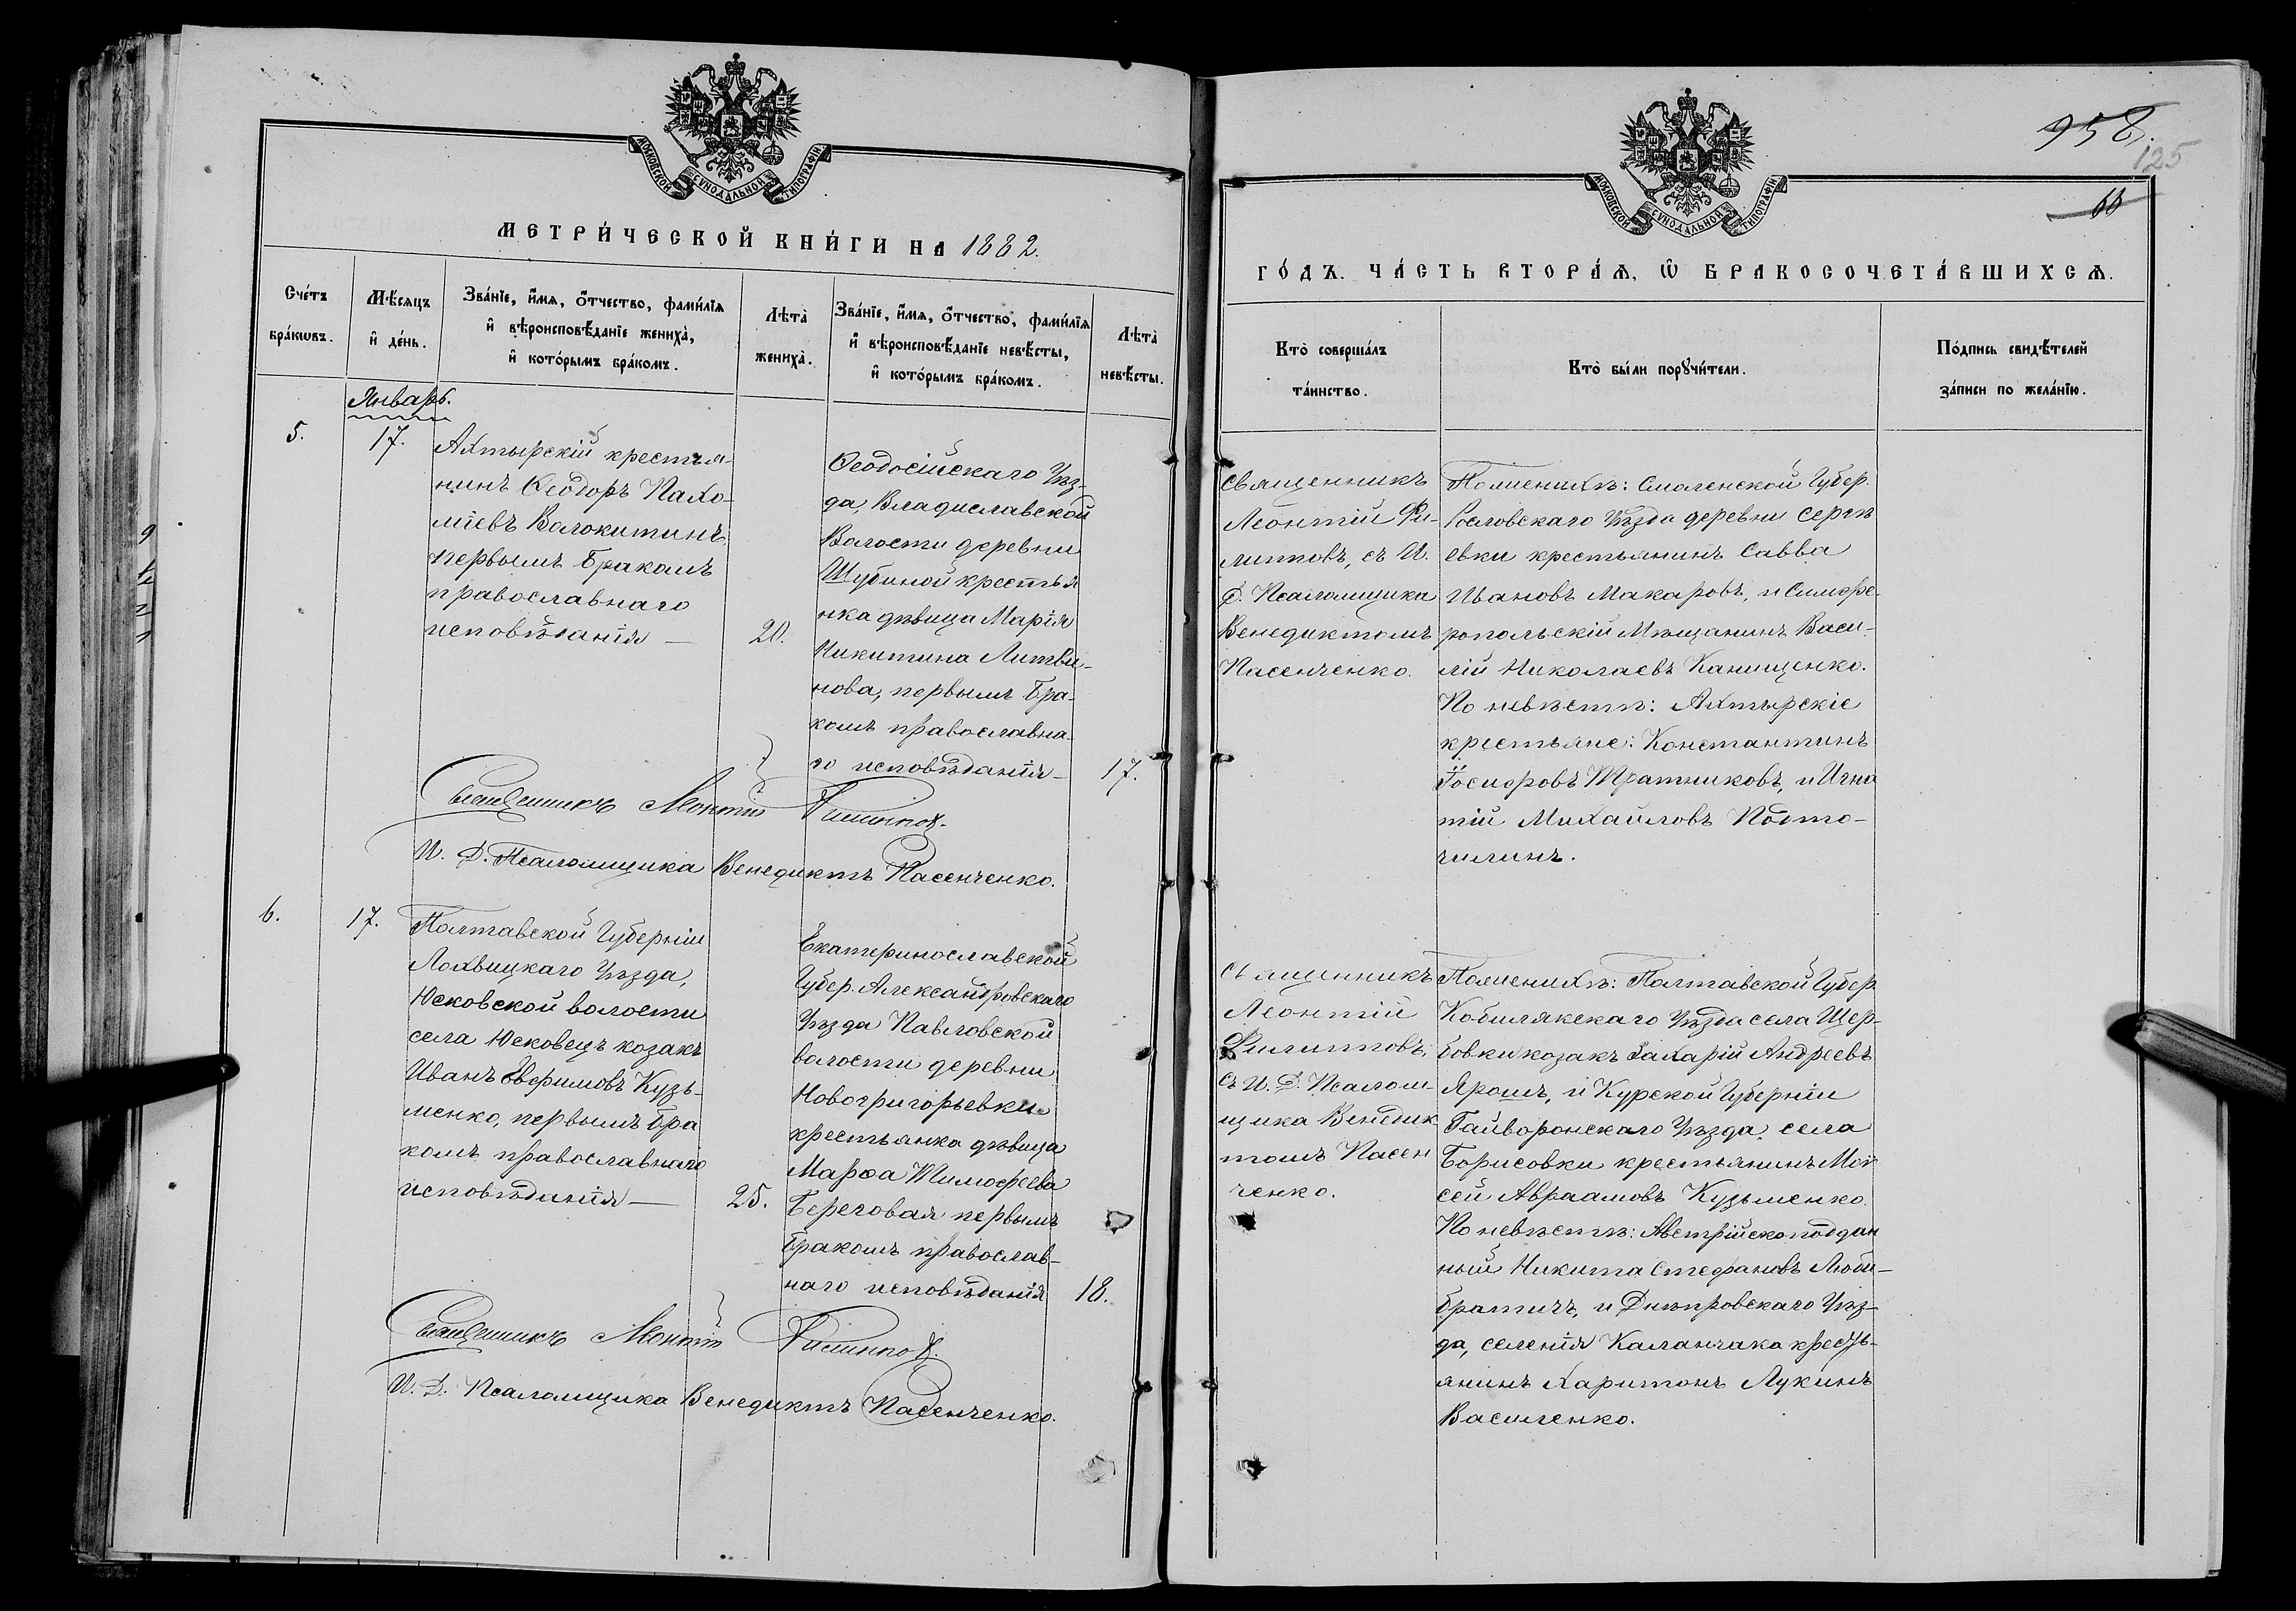 МОСКОВСКОЙ СѴНОДАЛЬНОЙ ТИПОГРАФІИ
МЕТРИ́ЧЕСКОЙ КНИ́ГИ НА 1882.
Сче́тъ бра́кωвъ.
Мѣ́сяцъ и҆ де́нь.
Зва́нїе, и҆́мѧ, ѻ҆́тчество, фами́лїѧ
и҆ вѣроисповѣ́данїе жениха̀,
и҆ кото́рымъ бра́комъ.
Лѣта̀ жениха̀.
Зва́нїе, и҆́мѧ, ѻ҆́тчество, фами́лїѧ
и҆ вѣроисповѣ́данїе невѣ́сты,
и҆ кото́рымъ бра́комъ.
Лѣта̀ невѣ́сты.
Январь.
5.
17.
Ахтырскій крестья-
нинъ Ѳеодоръ Пахо-
міевъ Волокитинъ,
первымъ бракомъ
православнаго
исповѣданія —
20.
Ѳеодосійскаго Уѣз-
да, Владиславской
Волости деревни
Шубиной крестья
нка дѣвица Марія
Никитина Литви-
нова, первымъ бра-
комъ православна-
го исповѣданія —
17.
Священникъ Леонтій Филиппов.
И. Д. Псаломщика Венедиктъ Пасенченко.
6.
17.
Полтавской Губерніи
Лохвицкаго Уѣзда,
Юсковской волости
села Юсковецъ козакъ
Иванъ Евфимовъ Кузь-
менко, первымъ бра
комъ православнаго
исповѣданія —
25.
Екатеринославской
Губер. Александровскаго
Уѣзда Павловской
волости деревни
Новогригорьевки
крестьянка дѣвица
Марѳа Тимофеева
Береговая первымъ
бракомъ православ-
наго исповѣданія
18.
Священникъ Леонтій Филиппов.
И. Д. Псаломщика Венедиктъ Пасенченко.
958.
125
МОСКОВСКОЙ СѴНОДАЛЬНОЙ ТИПОГРАФІИ
ГО́ДЪ. ЧА́СТЬ ВТОРА́Ѧ, Ѡ҆ БРАКОСОЧЕТА́ВШИХСѦ.
Кто̀ соверша́лъ
та́инство.
Кто̀ бы́ли порꙋчи́тели.
По́дпись свидѣ́телей
за́писи по жела́нїю.
Священникъ
Леонтій Фи-
липповъ, съ И.
Д. Псаломщика
Венедиктомъ
Пасенченко.
По женихѣ: Смоленской Губер.
Рословскаго Уѣзда деревни Сергѣ
евки крестьянинъ Савва
Ивановъ Макаровъ, и Симфе-
ропольскій Мѣщанинъ Васи-
лій Николаевъ Канищенко.
По невѣстѣ: Ахтырскіе
крестьяне: Константинъ
Іосифовъ Тратниковъ, и Игна
тій Михайловъ Подто-
чилинъ.
Священникъ
Леонтій
Филипповъ,
съ И. Д. Псалом-
щика Венедик
томъ Пасен
ченко.
По женихѣ: Полтавской Губер
Кобилякскаго Уѣзда села Щер-
бовки козакъ Захарій Андреевъ
Ярошъ, и Курской Губерніи
Гайворонскаго Уѣзда, села
Борисовки крестьянинъ Мои
сей Авраамовъ Кузьменко.
По невѣстѣ: Австрійско поддан
ный Никита Стефановъ Люби-
братичъ, и Днѣпровскаго Уѣз-
да, селенія Каланчака кресть-
янинъ Харитонъ Лукинъ
Василенко.